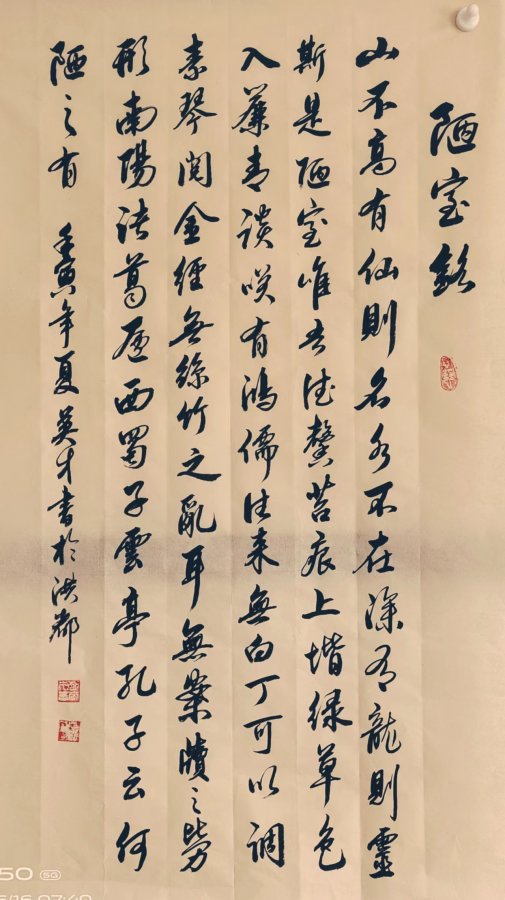 陋室銘
山不高有仙則名水不在深有龍則靈
斯是陋室唯吾德馨苔痕上堦緑草色
入簾青談咲有鴻儒往来無白丁可以調
素琴閲金經無絲竹之亂耳無案牘之勞
形南陽諸葛廬西蜀子雲亭孔子云何
陋之有 壬寅年夏英才書於洪都
50 5G